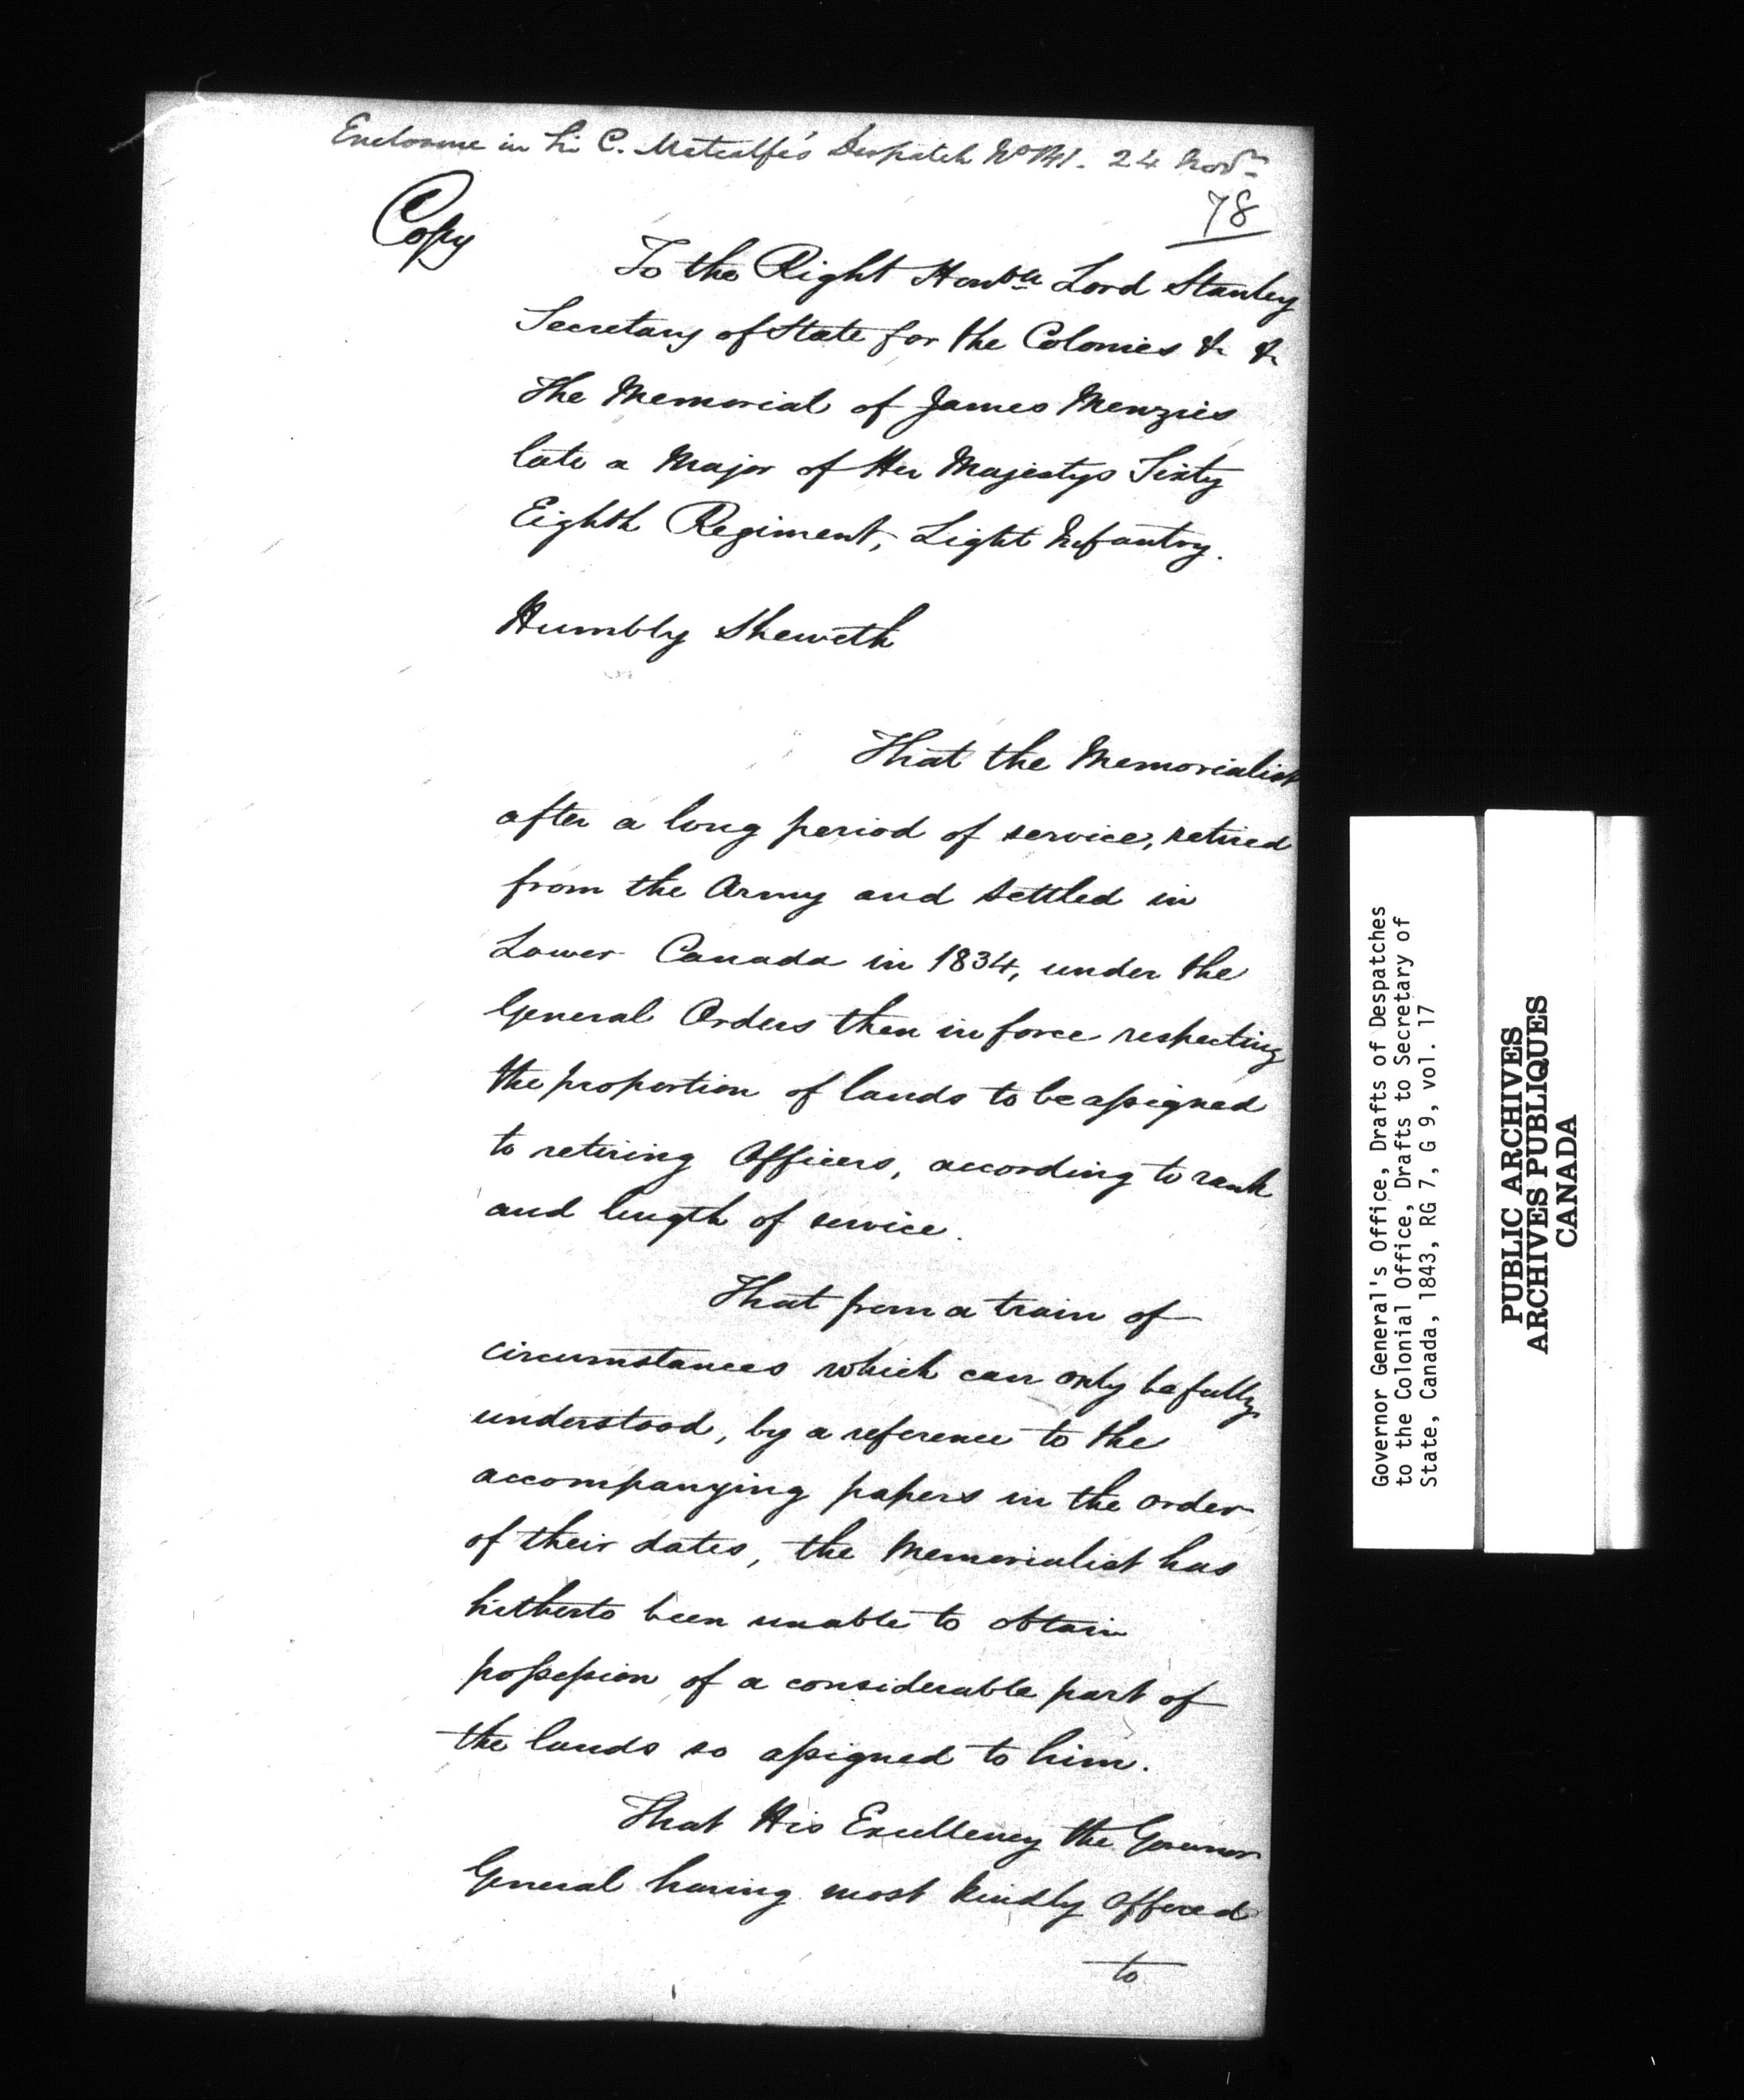 Enclosure in Sir C. Metcalfe's Despatch No 141. 24 Novr
78
Copy
To the Right Honble Lord Stanley
Secretary of State for the Colonies &c &c
The Memorial of James Menzies
late a Major of Her Majestys Sixty
Eighth Regiment, Light Infantry.
Humbly Sheweth
That the Memorialist
after a long period of service, retired
from the Army and settled in
Lower Canada in 1834, under the
General Orders then in force respecting
the proportion of lands to be assigned
to retiring Officers, according to rank
and length of service.
That from a train of
circumstances which can only be fully
understood, by a reference to the
accompanying papers in the order
of their dates, the Memorialist has
hitherto been unable to obtain
possession of a considerable part of
the lands so assigned to him.
That His Excellency the Governor
General having most kindly offered
to
Governor General's Office, Drafts of Despatches
to the Colonial Office, Drafts to Secretary of
State, Canada, 1843, RG 7, G 9, vol. 17
PUBLIC ARCHIVES
ARCHIVES PUBLIQUES
CANADA